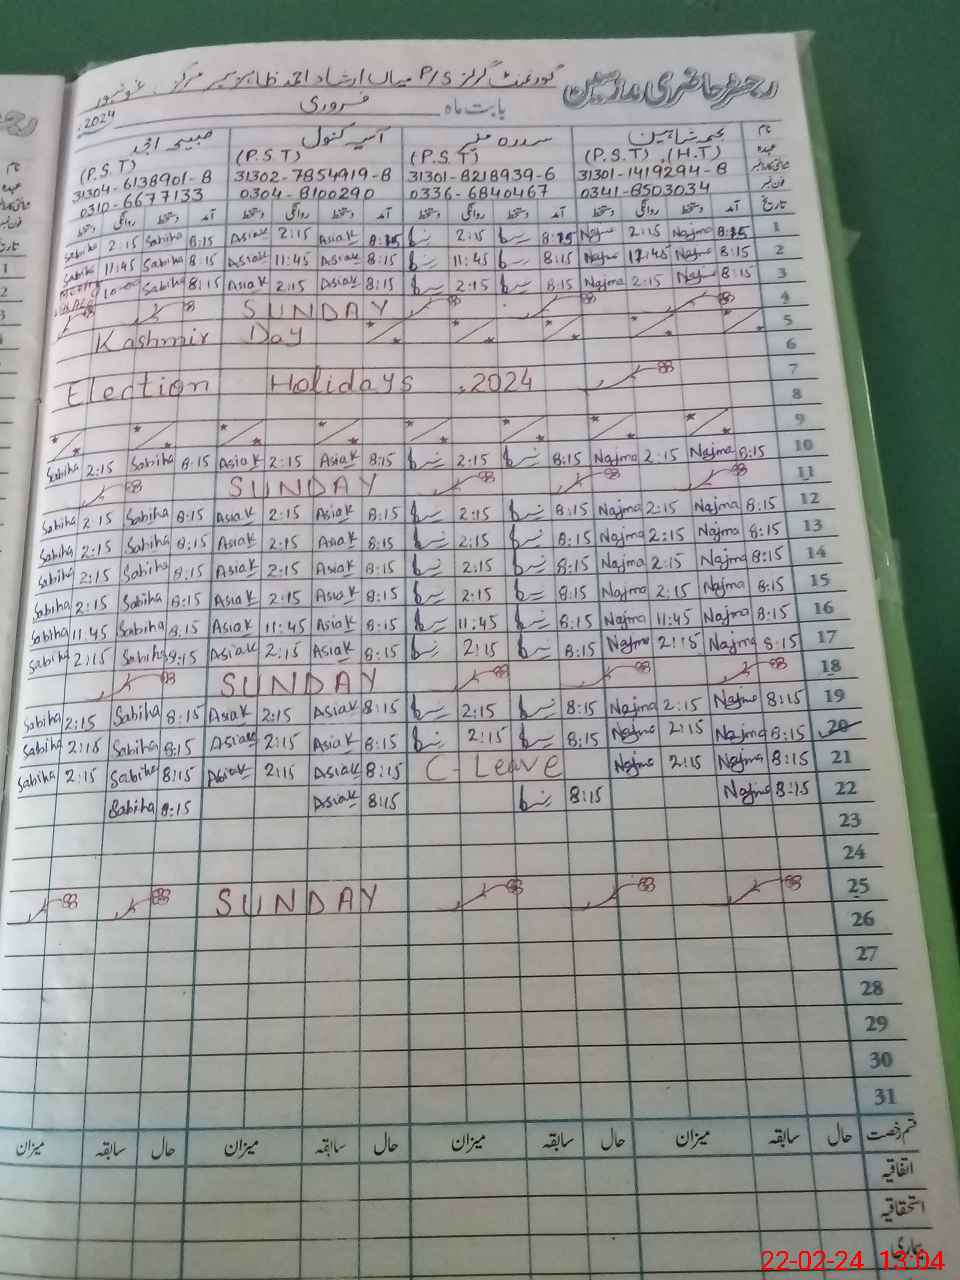 رجسٹر حاضری مدرسین گورنمنٹ گرلز P/S میاں ارشاد احمد ظاہر پیر مرکز غوثپور
بابت ماہ فروری 2024ء
نام نجمہ شاہین سدرہ منیر آسیہ کنول صبیحہ امجد
عہدہ (P.S.T) , (H.T) (P.S.T) (P.S.T) (P.S.T)
31301-1419294-8 31301-8218939-6 31302-7854919-8 31304-6138901-8
فون نمبر 0341-8503034 0336-6840467 0304-8100290 0310-6677133
تاریخ آمد دستخط روانگی دستخط آمد دستخط روانگی دستخط آمد دستخط روانگی دستخط آمد دستخط روانگی دستخط
1 8:15 Najma 2:15 Najma 8:15 2:15 8:15 Asiak 2:15 Asiak 8:15 Sabiha 2:15 Sabiha
2 8:15 Najma 11:45 Najma 8:15 11:45 8:15 Asiak 11:45 Asiak 8:15 Sabiha 11:45 Sabiha
3 8:15 Najma 2:15 Najma 8:15 2:15 8:15 Asiak 2:15 Asiak 8:15 Sabiha 10:00
4 SUNDAY
5 Kashmir Day
6
7 Election Holidays .2024
8
9
10 8:15 Najma 2:15 Najma 8:15 2:15 8:15 Asiak 2:15 Asiak 8:15 Sabiha 2:15 Sabiha
11 SUNDAY
12 8:15 Najma 2:15 Najma 8:15 2:15 8:15 Asiak 2:15 Asiak 8:15 Sabiha 2:15 Sabiha
13 8:15 Najma 2:15 Najma 8:15 2:15 8:15 Asiak 2:15 Asiak 8:15 Sabiha 2:15 Sabiha
14 8:15 Najma 2:15 Najma 8:15 2:15 8:15 Asiak 2:15 Asiak 8:15 Sabiha 2:15 Sabiha
15 8:15 Najma 2:15 Najma 8:15 2:15 8:15 Asiak 2:15 Asiak 8:15 Sabiha 2:15 Sabiha
16 8:15 Najma 11:45 Najma 8:15 11:45 8:15 Asiak 11:45 Asiak 8:15 Sabiha 11:45 Sabiha
17 8:15 Najma 2:15 Najma 8:15 2:15 8:15 Asiak 2:15 Asiak 8:15 Sabiha 2:15 Sabiha
18 SUNDAY
19 8:15 Najma 2:15 Najma 8:15 2:15 8:15 Asiak 2:15 Asiak 8:15 Sabiha 2:15 Sabiha
20 8:15 Najma 2:15 Najma 8:15 2:15 8:15 Asiak 2:15 Asiak 8:15 Sabiha 2:15 Sabiha
21 8:15 Najma 2:15 Najma C-Leave 8:15 Asiak 2:15 Asiak 8:15 Sabiha 2:15 Sabiha
22 8:15 Najma 8:15 8:15 Asiak 8:15 Sabiha
23
24
25 SUNDAY
26
27
28
29
30
31
قسم رخصت حال سابقہ میزان حال سابقہ میزان حال سابقہ میزان حال سابقہ میزان
اتفاقیہ
استحقاقیہ
بیماری
22-02-24 13:04